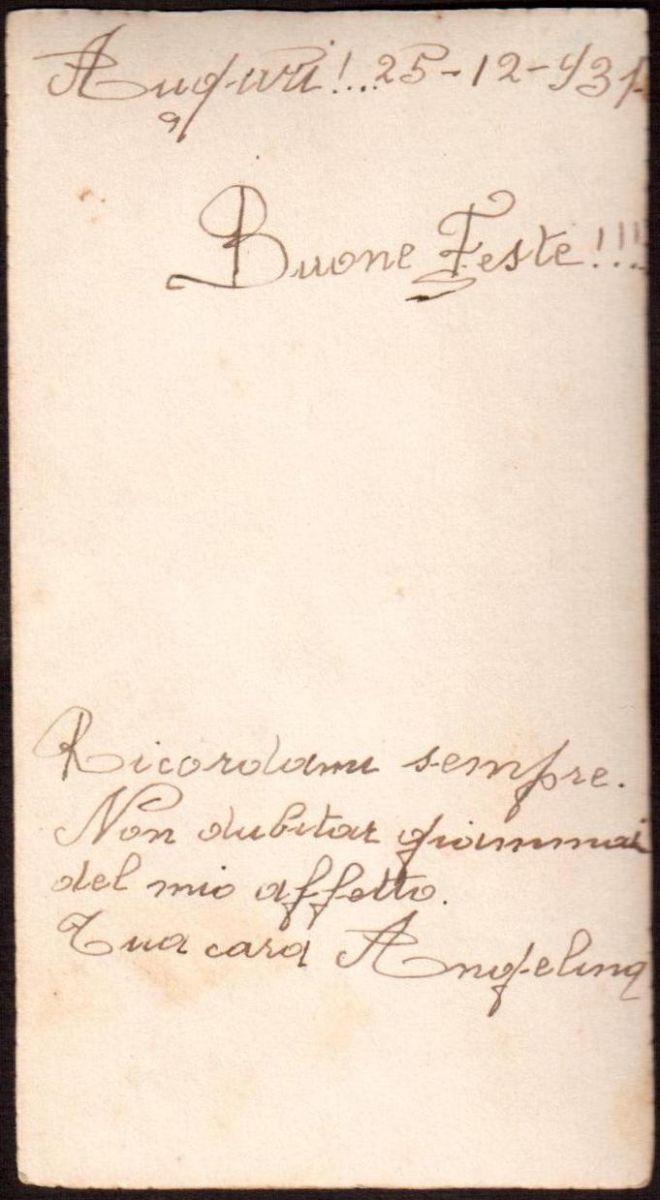 Auguri!...25-12-931
Buone Feste!!!
Ricordami sempre.
Non dubitar giammai
del mio affetto.
Tua cara Angelina